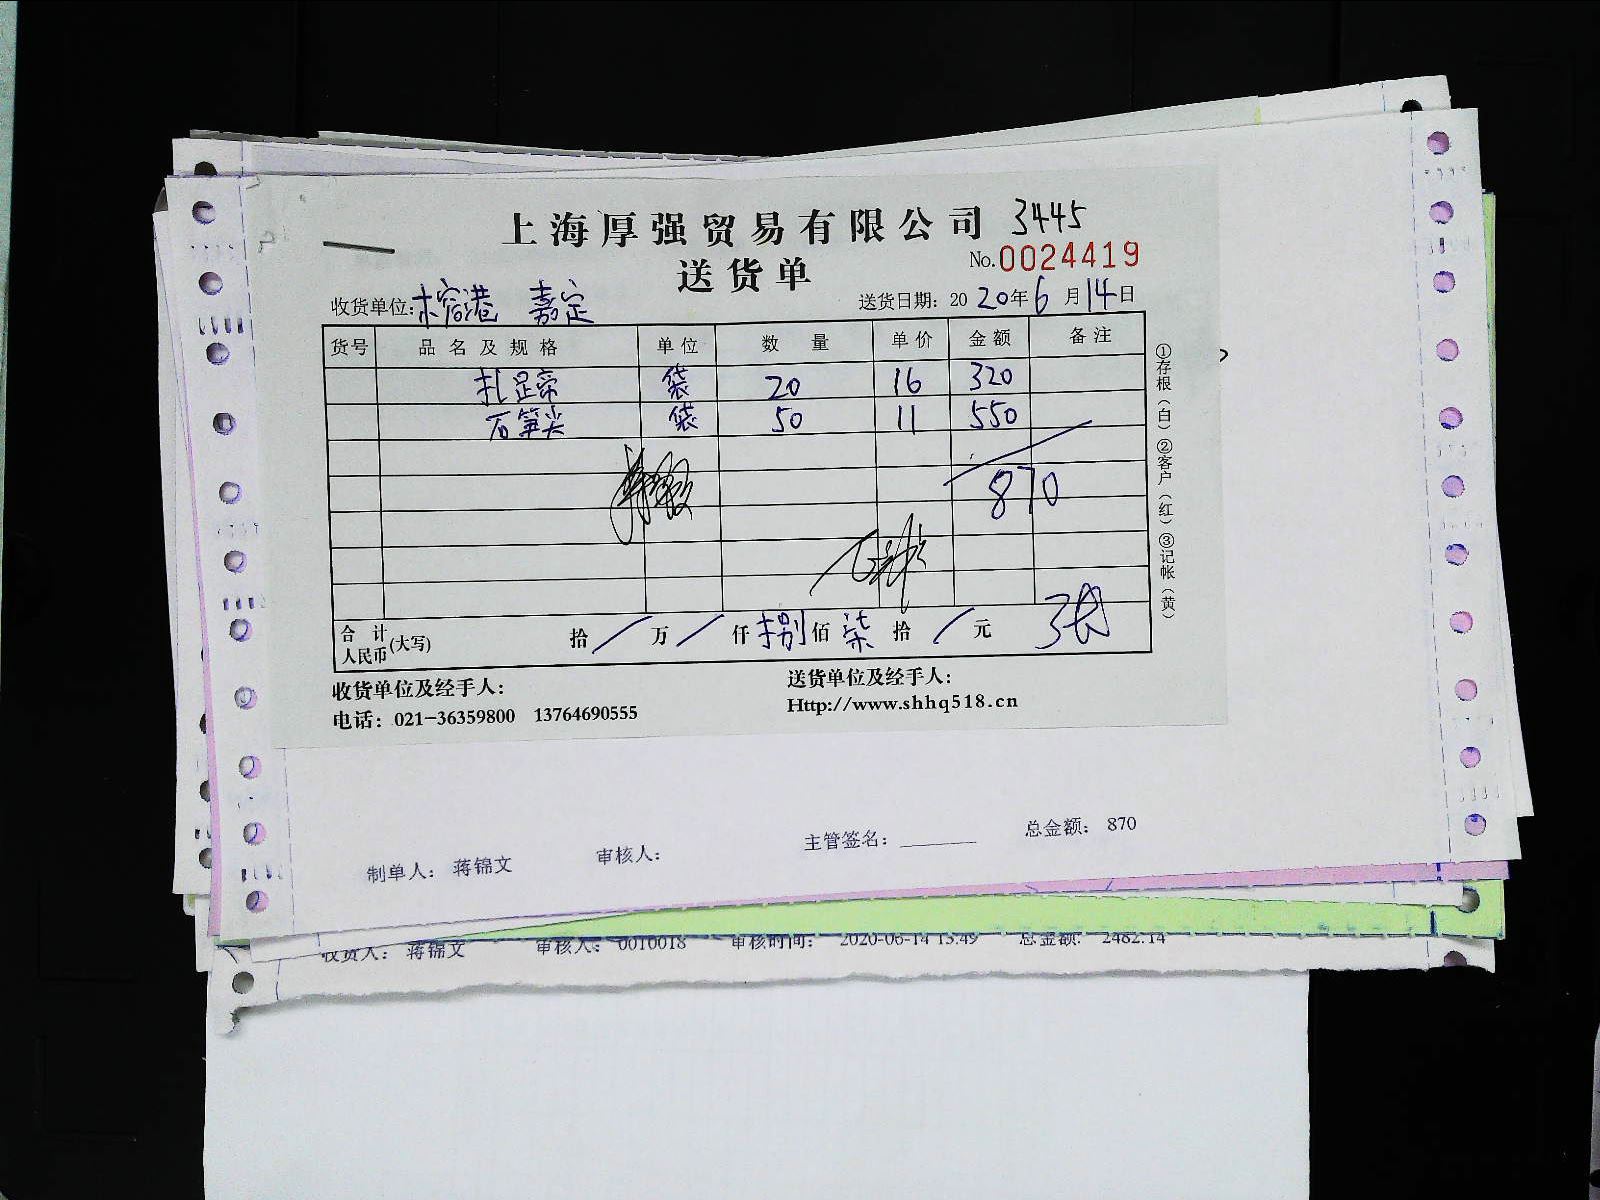 上海厚强贸易有限公司 3445
送货单 No.0024419
收货单位: 嘉定 送货日期: 2020年6月14日
货号 品名及规格 单位 数量 单价 金额 备注
袋 20 16 320
石笋尖 袋 50 11 550
870
合计人民币(大写) 拾 / 万 / 仟 捌 佰 柒 拾 / 元
收货单位及经手人: 送货单位及经手人:
电话: 021-36359800 13764690555 Http://www.shhq518.cn
①存根(白) ②客户(红) ③记帐(黄)
制单人: 蒋锦文 审核人: 主管签名: 总金额: 870
收货人: 蒋锦文 审核人: 0010018 审核时间: 2020-06-14 13:49 总金额: 2482.14